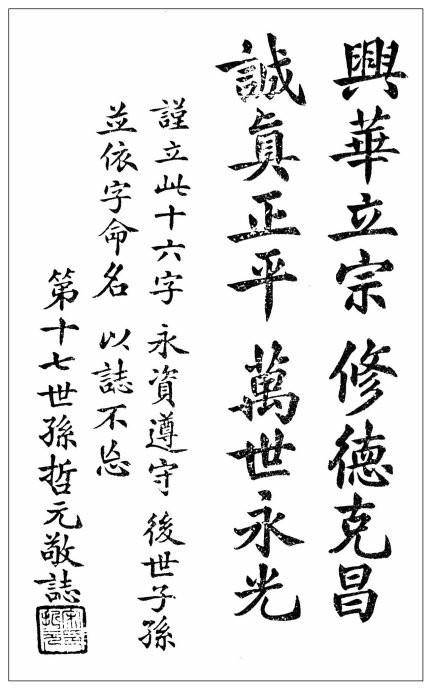 興華立宗 修德克昌
誠眞正平 萬世永光
謹立此十六字 永資遵守 後世子孫
並依字命名 以誌不忘
第十七世孫哲元敬誌